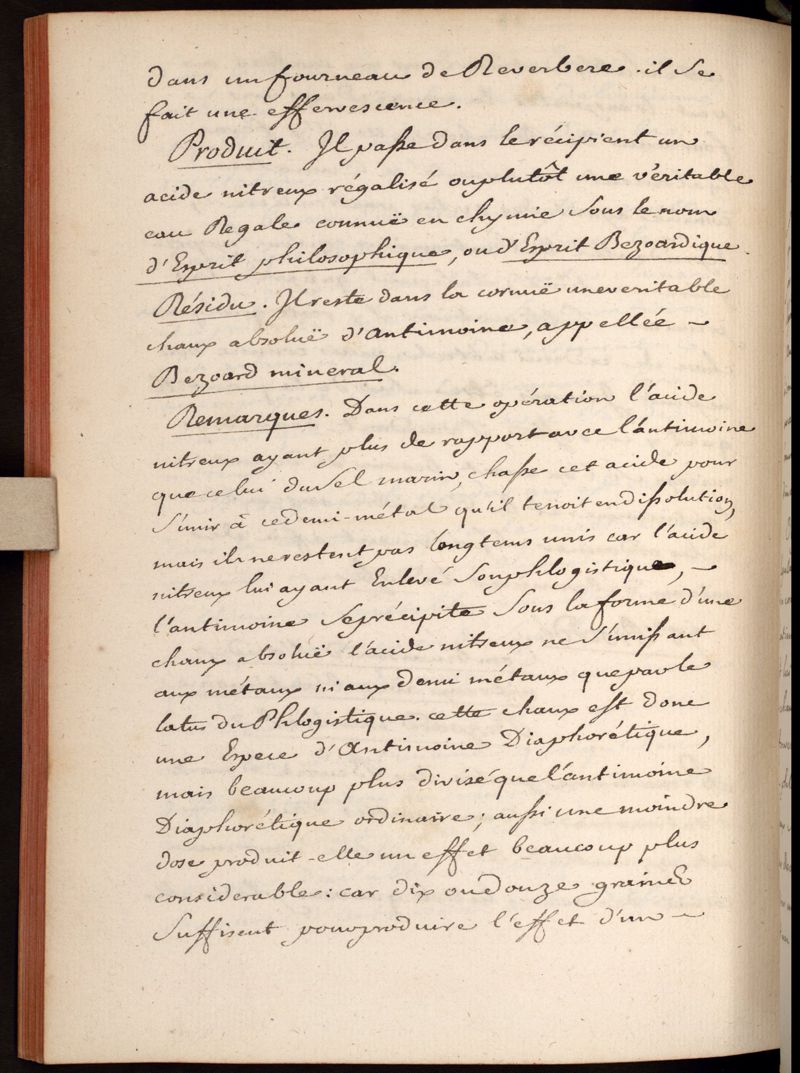 dans un fourneau de Reverbere. il se
fait une effervescence.
Produit. Il passe dans le récipient un
acide nitreux régalisé ou plutôt une véritable
eau Regale connuë en chymie sous le nom
d'Esprit philosophique, ou d'Esprit Bezoardique.
Résidu. Il reste dans la cornuë une veritable
chaux absoluë d'antimoine, appellée ~
Bezoard mineral.
Remarques. Dans cette opération l'acide
nitreux ayant plus de rapport avec l'antimoine
que celui du sel marin, chasse cet acide pour
s'unir à ce demi-métal qu'il tenoit en dissolution,
mais ils ne restent pas longtems unis car l'acide
nitreux lui ayant Enlevé son phlogistique, ~
l'antimoine se précipite sous la forme d'une
chaux absoluë l'acide nitreux ne s'unissant
aux métaux ni aux demi métaux que par le
latus du Phlogistique. cette chaux est donc
une Espece d'Antimoine Diaphorétique,
mais beaucoup plus divisé que l'antimoine
Diaphorétique ordinaire; aussi une moindre
dose produit-elle un effet beaucoup plus
considerable: car dix ou douze graines
suffisent pour produire l'effet d'un ~